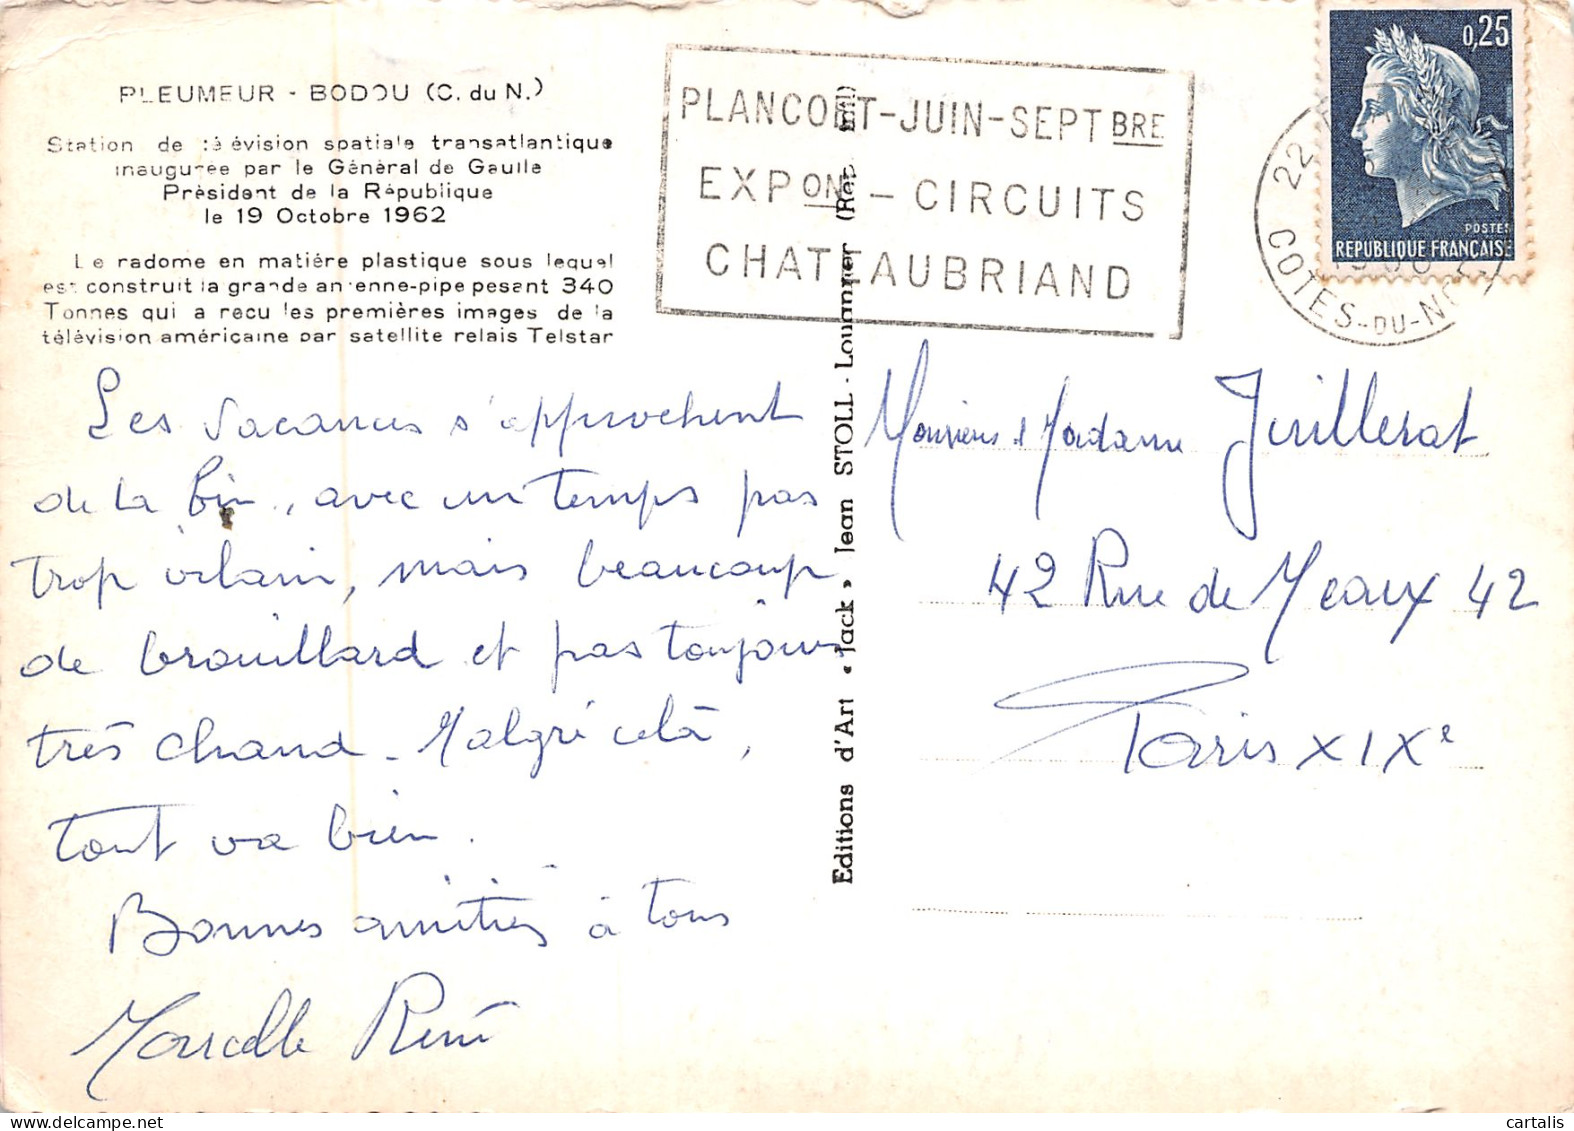 PLEUMEUR - BODOU (C. du N.)
Station de télévision spatiale transatlantique
inaugurée par le Général de Gaulle
Président de la République
le 19 Octobre 1962
Le radome en matière plastique sous lequel
est construit la grande antenne-pipe pesant 340
Tonnes qui a recu les premières images de la
télévision américaine par satellite relais Telstar
Les vacances s'approchent
de la fin, avec un temps pas
trop vilain, mais beaucoup
de brouillard et pas toujours
très chaud. Malgré celà,
tout va bien.
Bonnes amitiés à tous
Marcelle René
Editions d'Art « Jack » Jean STOLL - Louannec (Rep. Int.)
PLANCOËT-JUIN-SEPTBRE
EXPON - CIRCUITS
CHATEAUBRIAND
0,25
POSTES
REPUBLIQUE FRANÇAISE
22
COTES-DU-NORD
Monsieur & Madame Juillerat
42 Rue de Meaux 42
Paris XIXe
cartalis
www.delcampe.net